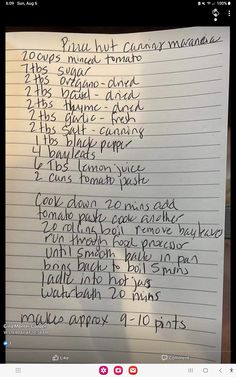 6:09 Sun, Aug 6
Pizza hut canning maranara
20 cups minced tomato
7 tbs sugar
2 tbs oregano - dried
2 tbs basel - dried
2 tbs thyme - dried
2 tbs garlic - fresh
2 tbs salt - canning
1 tbs black pepper
4 bayleafs
6 Tbs lemon juice
2 cans tomato paste
Cook down 20 mins add
tomato paste cook another
20 rolling boil remove bayleaves
run through food processor
until smooth back in pan
bring back to boil 5 mins
ladle into hot jars
Waterbath 20 mins
makes approx 9-10 pints
Like
Comment